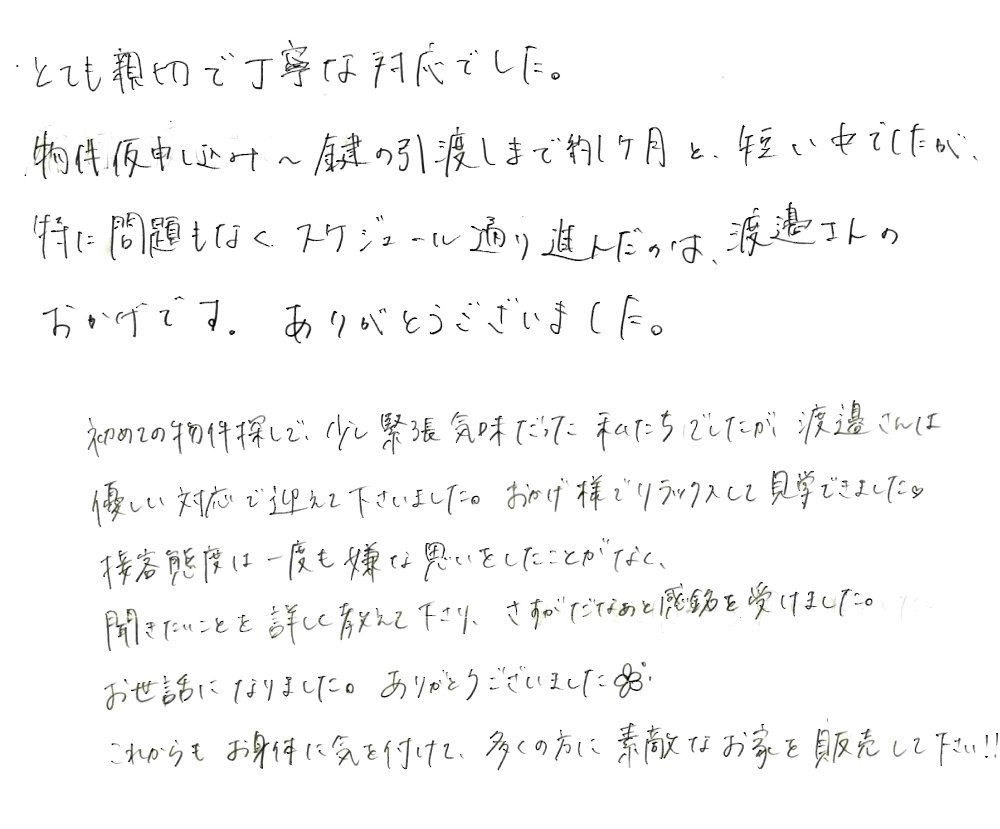 ・とても親切で丁寧な対応でした。
物件仮申し込み～鍵の引渡しまで約1ケ月と、短い中でしたが、
特に問題もなく スケジュール通り進んだのは、渡邊さんの
おかげです。 ありがとうございました。
初めての物件探しで、少し緊張気味だった私たちでしたが 渡邊さんは
優しい対応で迎えて下さいました。おかげ様でリラックスして見学できました♡
接客態度は一度も嫌な思いをしたことがなく、
聞きたいことを詳しく教えて下さり、さすがだなぁと感銘を受けました。
お世話になりました。ありがとうございました
これからもお身体に気を付けて、多くの方に素敵なお家を販売して下さい!!